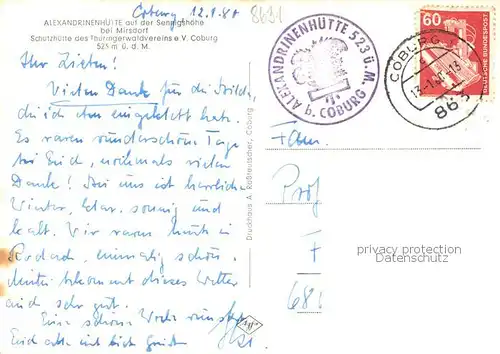 Coburg 12.1.81 8631
ALEXANDRINENHÜTTE auf der Sennigshöhe
bei Mirsdorf
Schutzhütte des Thüringerwaldvereins e. V. Coburg
523 m ü. d. M.
ALEXANDRINENHÜTTE 523 Ü. M.
b. COBURG
60
DEUTSCHE BUNDESPOST
COBURG
863
Ihr Lieben!
Vielen Dank für die Bilder,
die ich eben habt.
Es waren wunderschöne Tage
bei Euch, nochmals vielen
Dank! Bei uns ist herrlicher
Winter, klar, sonnig und
kalt. Wir waren heute in
Rodach, einmalig schön.
bekommt dieses Wetter
auch sehr gut.
Eine schöne Woche wünscht
Euch alle mit lieb Grüßen
Druckhaus A. Roßteutscher, Coburg
Fam.
Prof
F
68
privacy protection
Datenschutz